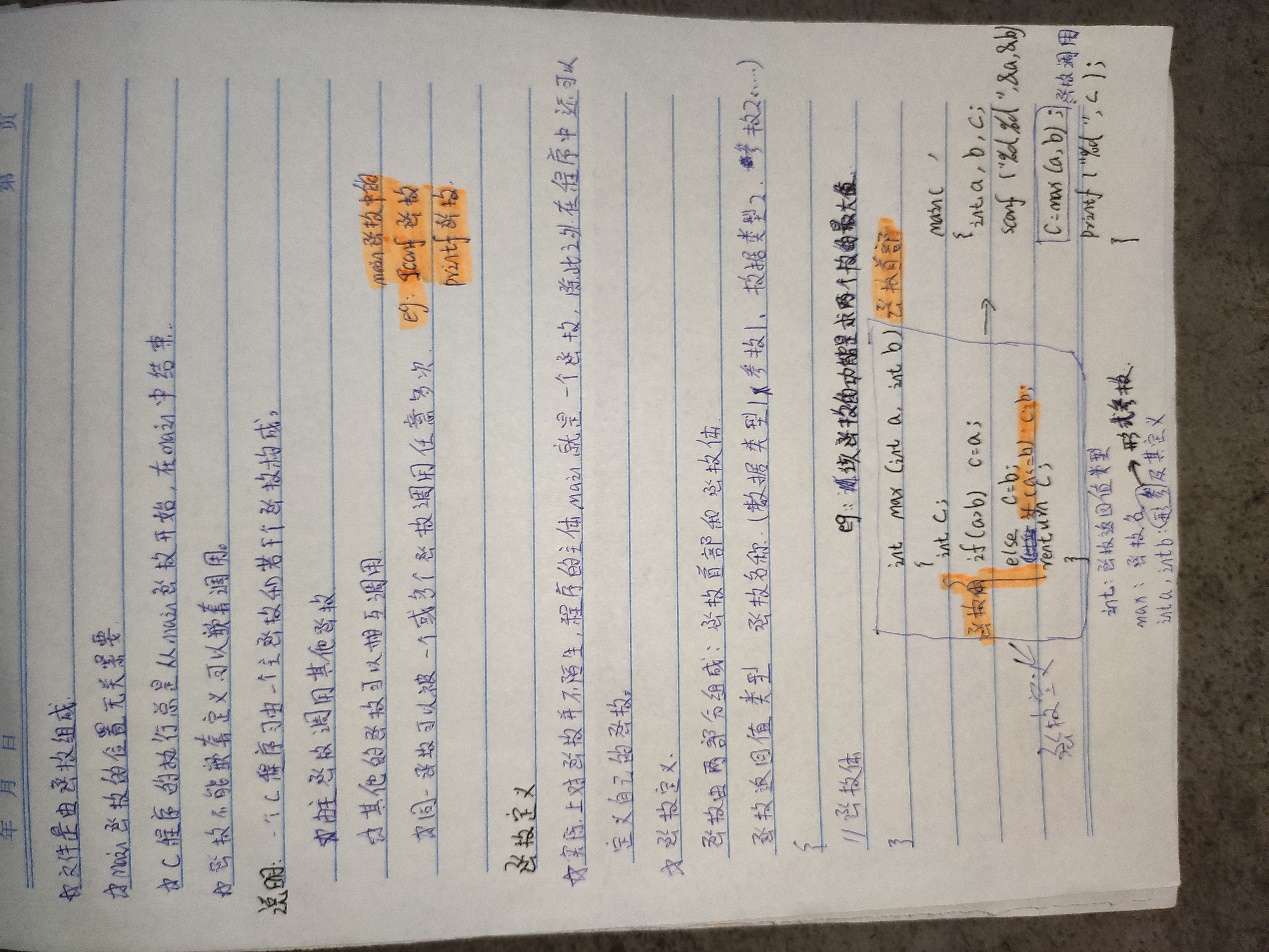 年 月 日
第 页
☆文件是由函数组成.
☆main函数的位置无关紧要
☆C程序的执行总是从main函数开始,在main中结束.
☆函数不能嵌套定义可以嵌套调用。
说明:一个C程序可由一个主函数和若干个函数构成,
☆由主函数调用其他函数
☆其他的函数可以相互调用
☆同一函数可以被一个或多个函数调用任意多次.
main函数中的
eg: scanf函数
printf函数.
函数定义
☆实际上对函数并不陌生,程序的主体main就是一个函数,除此之外在程序中还可以
定义自己的函数。
☆函数定义.
函数由两部分组成:函数首部和函数体.
函数返回值类型 函数名称(数据类型1 参数1、数据类型2、参数2……)
{
//函数体
}
eg: 该函数的功能是求两个数的最大值.
int max (int a, int b) 函数首部
{
int c;
函数体
if(a>b) c=a;
else c=b;
if (a<=b) c=b;
rentuin c;
}
函数定义
→
main(,
{int a, b, c;
scanf ("%d,%d",&a,&b)
c=max(a,b); 函数调用
printf ("%d", c);
}
int: 函数返回值类型
max: 函数名
int a, int b: 形参及其定义
→形式参数.